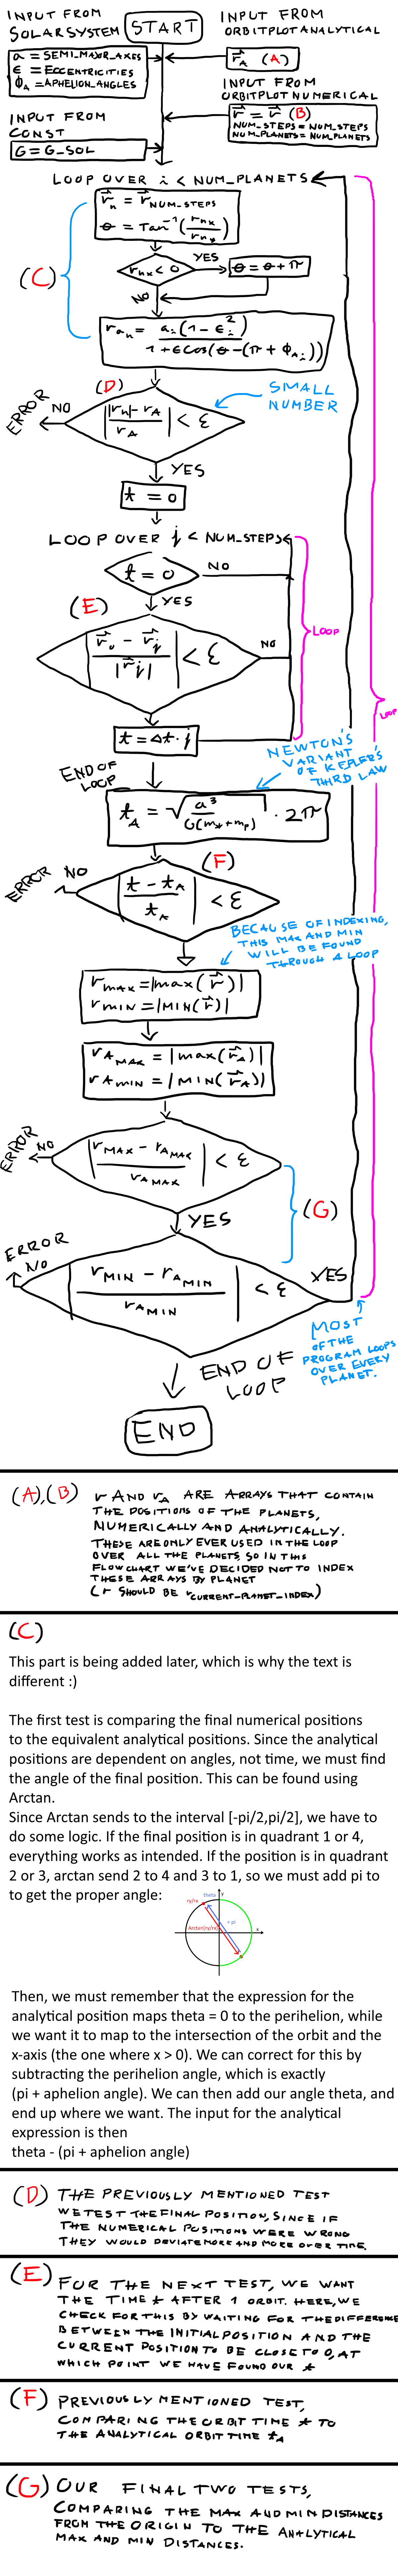 INPUT FROM
SOLARSYSTEM
START
INPUT FROM
ORBITPLOTANALYTICAL
a = SEMI_MAJOR_AXES
ϵ = ECCENTRICITIES
Φ_A = APHELION_ANGLES
r⃗_A (A)
INPUT FROM
ORBITPLOT NUMERICAL
r⃗ = r⃗ (B)
NUM_STEPS = NUM_STEPS
NUM_PLANETS = NUM_PLANETS
INPUT FROM
CONST
G = G_SOL
LOOP OVER i < NUM_PLANETS
r⃗_n = r⃗_NUM_STEPS
(C)
r_nx < 0
YES
θ = θ + π
NO
r_An = a_i(1 - ϵ_i²) / 1 + ϵCos(θ - (π + Φ_Ai))
(D)
| |r_n| - r_A / r_A | < ε
ERROR
NO
SMALL
NUMBER
YES
t = 0
LOOP OVER j < NUM_STEPS
t = 0
NO
YES
(E)
| r⃗_0 - r⃗_j / |r⃗_j| | < ε
NO
LOOP
LOOP
t = Δt · j
END OF
LOOP
NEWTON'S
VARIANT
OF KEPLER'S
THIRD LAW
t_A = √(a³ / G(m_* + m_p)) · 2π
(F)
ERROR
NO
| t - t_A / t_A | < ε
BECAUSE OF INDEXING,
THIS MAX AND MIN
WILL BE FOUND
THROUGH A LOOP
r_MAX = |max(r⃗)|
r_MIN = |MIN(r⃗)|
r_A MAX = |max(r⃗_A)|
r_A MIN = |MIN(r⃗_A)|
| r_MAX - r_A MAX / r_A MAX | < ε
ERROR
NO
YES
(G)
ERROR
NO
| r_MIN - r_A MIN / r_A MIN | < ε
YES
MOST
OF THE
PROGRAM LOOPS
OVER EVERY
PLANET.
END OF
LOOP
END
(A),(B) r AND r_A ARE ARRAYS THAT CONTAIN
THE POSITIONS OF THE PLANETS,
NUMERICALLY AND ANALYTICALLY.
THESE ARE ONLY EVER USED IN THE LOOP
OVER ALL THE PLANETS, SO IN THIS
FLOWCHART WE'VE DECIDED NOT TO INDEX
THESE ARRAYS BY PLANET
(r SHOULD BE r_CURRENT-PLANET-INDEX)
(C)
This part is being added later, which is why the text is
different :)
The first test is comparing the final numerical positions
to the equivalent analytical positions. Since the analytical
positions are dependent on angles, not time, we must find
the angle of the final position. This can be found using
Arctan.
Since Arctan sends to the interval [-pi/2,pi/2], we have to
do some logic. If the final position is in quadrant 1 or 4,
everything works as intended. If the position is in quadrant
2 or 3, arctan send 2 to 4 and 3 to 1, so we must add pi to
to get the proper angle:
theta
y
+ pi
x
Then, we must remember that the expression for the
analytical position maps theta = 0 to the perihelion, while
we want it to map to the intersection of the orbit and the
x-axis (the one where x > 0). We can correct for this by
subtracting the perihelion angle, which is exactly
(pi + aphelion angle). We can then add our angle theta, and
end up where we want. The input for the analytical
expression is then
theta - (pi + aphelion angle)
(D) THE PREVIOUSLY MENTIONED TEST
WE TEST THE FINAL POSITION, SINCE IF
THE NUMERICAL POSITIONS WERE WRONG
THEY WOULD DEVIATE MORE AND MORE OVER TIME.
(E) FOR THE NEXT TEST, WE WANT
THE TIME t AFTER 1 ORBIT. HERE, WE
CHECK FOR THIS BY WAITING FOR THE DIFFERENCE
BETWEEN THE INITIAL POSITION AND THE
CURRENT POSITION TO BE CLOSE TO 0, AT
WHICH POINT WE HAVE FOUND OUR t
(F) PREVIOUSLY MENTIONED TEST,
COMPARING THE ORBIT TIME t TO
THE ANALYTICAL ORBIT TIME t_A
(G) OUR FINAL TWO TESTS,
COMPARING THE MAX AND MIN DISTANCES
FROM THE ORIGIN TO THE ANALYTICAL
MAX AND MIN DISTANCES.